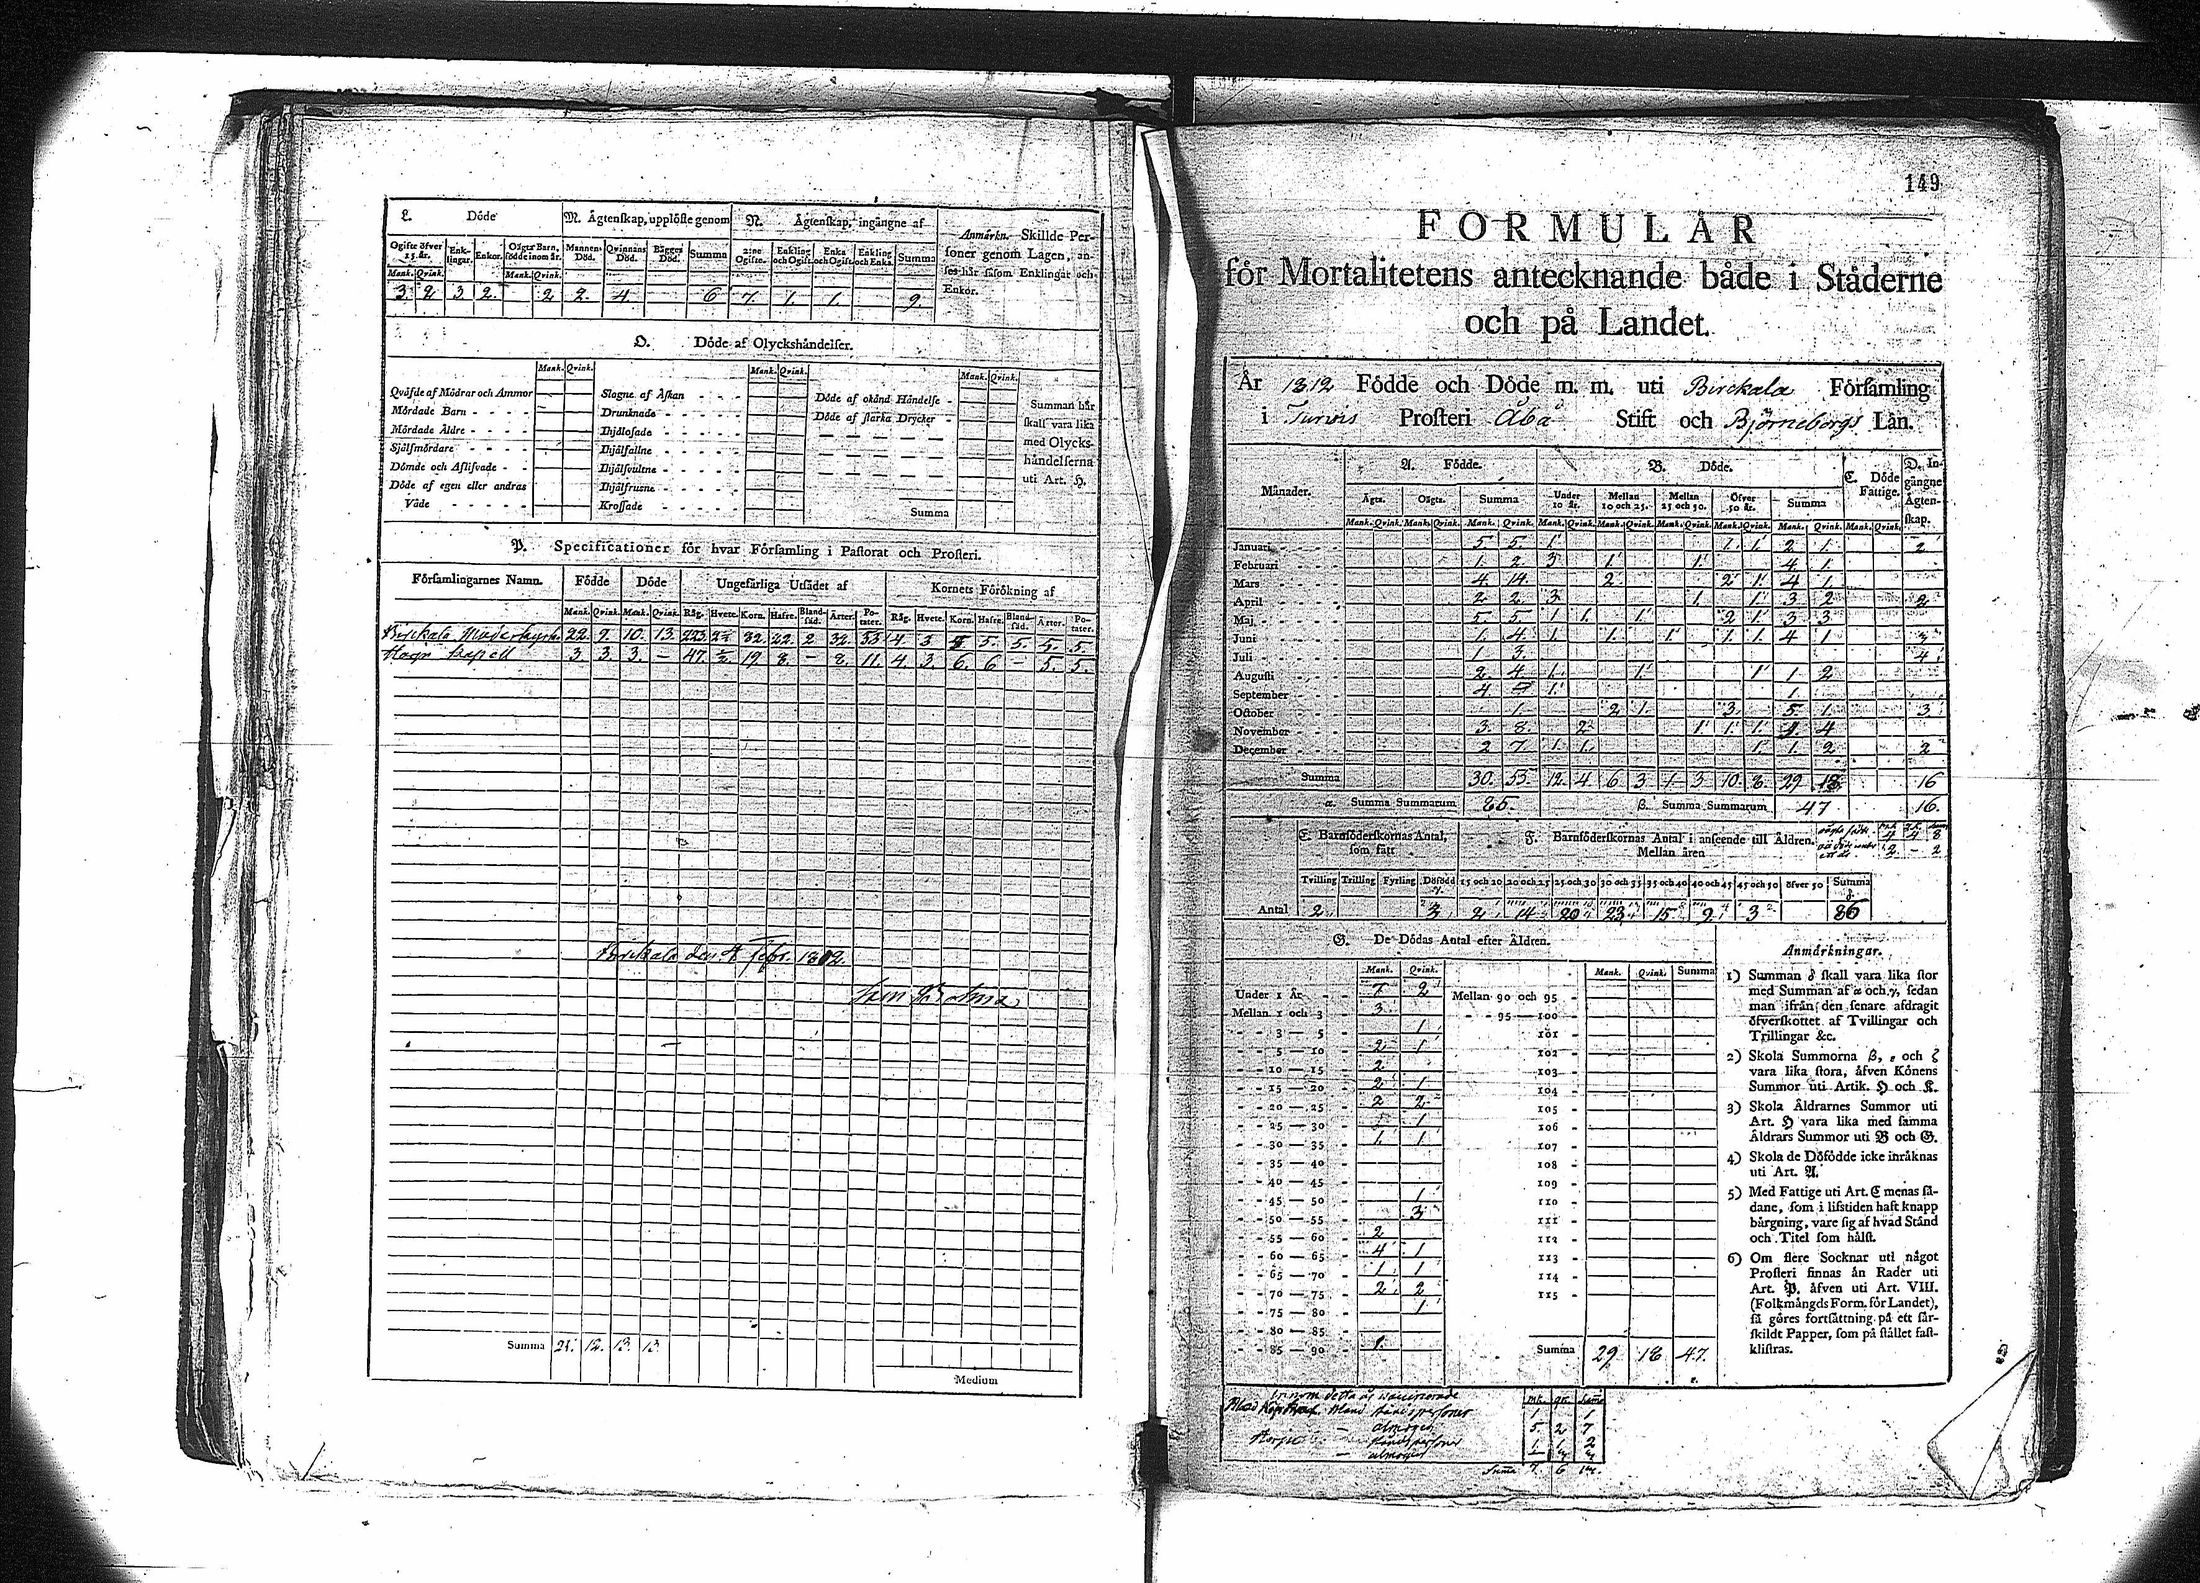 L. Döde
M. Ägtenskap, upplöste genom
N. Ägtenskap, ingångne af
Anmärkn. Skillde Personer genom Lagen, anses här såsom Enklingar och Enkor.
Ogifte öfver 15 år. Enklingar. Enkor. Oägta Barn, födde inom år. Mannens Död. Qvinnans Död. Bägges Död. Summa 2:ne Ogifte. Enkling och Ogift. Enka och Ogift. Enkling och Enka. Summa
Mank. Qvink. Mank. Qvink.
3. 2 3 2. 2 2. 4. 6 7. 1. 1. 9.
O. Döde af Olyckshändelser.
Mank. Qvink. Mank. Qvink. Mank. Qvink.
Qväfde af Mödrar och Ammor
Mördade Barn
Mördade Äldre
Självmördare
Dömde och Aflifvade
Döde af egen eller andras Våde
Slagne af Åskan
Drunknade
Ihjälosade
Ihjälfallne
Ihjälsvultne
Ihjälfrusne
Krossade
Döde af okänd Händelse
Döde af starka Drycker
Summa
Summan här skall vara lika med Olyckshändelserna uti Art. H.
P. Specificationer för hvar Församling i Pastorat och Prosteri.
Församlingarnes Namn. Födde Döde Ungefärliga Utsädet af Kornets Förökning af
Mank. Qvink. Mank. Qvink. Råg. Hvete. Korn. Hafre. Blandsäd. Ärter. Potater. Råg. Hvete. Korn. Hafre. Blandsäd. Ärter. Potater.
Birckala 22. 9. 10. 13. 32. 22. 2 32. 53. 4 3 5. 5. 5. 5.
Capell 3 3. 3. — 47. ½ 19 8. — 8. 11. 4. 3. 6. 6 — 5. 5.
Birckala den Febr.
Summa 12. 13. 13.
Medium
149
FORMULÄR
för Mortalitetens antecknande både i Städerne
och på Landet.
År 1812 Födde och Döde m. m. uti Birckala Församling
i Prosteri Åbå Stift och Björneborgs Län.
Månader. A. Födde. B. Döde. C. Döde Fattige. D. Ingångne Ägtenskap.
Ägta. Oägta. Summa Under 10 år. Mellan 10 och 25. Mellan 25 och 50. Öfver 50 år. Summa
Mank. Qvink. Mank. Qvink. Mank. Qvink. Mank. Qvink. Mank. Qvink. Mank. Qvink. Mank. Qvink. Mank. Qvink. Mank. Qvink.
Januari 5 5 1 1. 1. 2 1. 2
Februari 1. 2. 3 1. 1. 4. 1.
Mars 4. 14. 2. 2 1. 4. 1
April 2 2 3. 1. 1. 3 2 2
Maj 5. 5. 1 1. 1. 2 1. 3 3
Juni 1. 4. 1. 1. 1 1. 1 4 1 3
Juli 1 3. 4
Augusti 2. 4 1. 1. 1 1 2
September 4 1. 1.
October 1. 2 1. 3. 5 1. 3
November 3. 8. 2 1 1. 1. 4
December 2 7. 1. 1. 1 1. 2 2
Summa 30. 55. 12. 4 6 3 1 3 10. 8. 29 18 16
α. Summa Summarum 85. β. Summa Summarum 47 16.
E. Barnföderskornas Antal, som fått
F. Barnföderskornas Antal i anseende till Åldren. Mellan åren
4 4 8
2 - 2
Tvilling Trilling Fyrling Dödfödd γ. 15 och 20 20 och 25 25 och 30 30 och 35 35 och 40 40 och 45 45 och 50 öfver 50 Summa δ
Antal 2 3 2 14 20 23 15 9 3 86
G. De Dödas Antal efter Åldren.
Mank. Qvink. Mank. Qvink. Summa
Under 1 År 7. 2 Mellan 90 och 95
Mellan 1 och 3 3. 95 — 100
3 — 5 1 101
5 — 10 2 1 102
10 — 15 2 103
15 — 20 2 1 104
20 — 25 2 2 105
25 — 30 1 106
30 — 35 1. 1 107
35 — 40 108
40 — 45 109
45 — 50 1 110
50 — 55 3 111
55 — 60 2 112
60 — 65 4 1 113
65 — 70 1 1 114
70 — 75 2 2 115
75 — 80 1
80 — 85
85 — 90 1. Summa 29 18 47.
Anmärkningar.
1) Summan δ skall vara lika stor
med Summan af α och γ, sedan
man ifrån den senare afdragit
öfverskottet af Tvillingar och
Trillingar &c.
2) Skola Summorna β, ε och ζ
vara lika stora, äfven Könens
Summor uti Artik. H och K.
3) Skola Åldrarnes Summor uti
Art. H vara lika med samma
Åldrars Summor uti B och G.
4) Skola de Dödfödde icke inräknas
uti Art. A.
5) Med Fattige uti Art. C menas sådane,
som i lifstiden haft knapp
bärgning, vare sig af hvad Stånd
och Titel som hälst.
6) Om flere Socknar uti något
Prosteri finnas än Rader uti
Art. P, äfven uti Art. VIII.
(Folkmängds Form. för Landet),
så göres fortsättning på ett särskildt
Papper, som på stället fastklistras.
Innom detta år vaccinerade mk. qv. Suma
Bland Ståndspersoner 1 1
— almogen 5 2 7
Ståndspersoner 1. 1. 2
— almogen
Suma 7 6